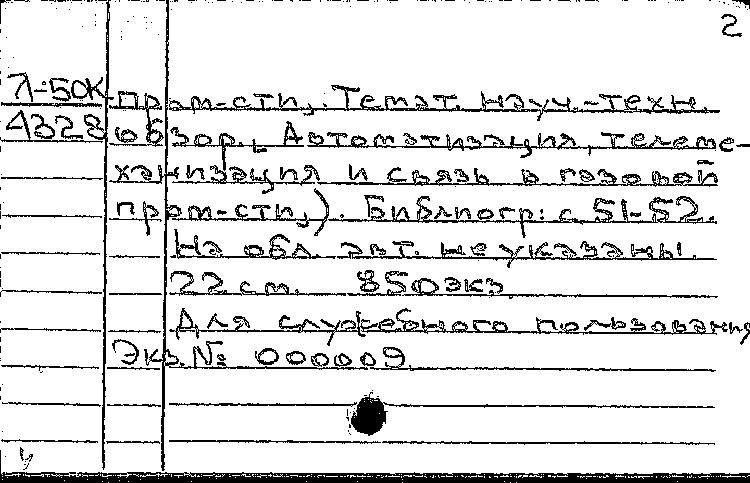 2
Л-50К пром-сти,. Темат. науч.-техн.
4328 обзор., Автоматизация, телеме-
ханизация и связь в газовой
пром-сти,). Библиогр: с. 51-52.
На обл. авт. не указаны.
22 см. 850 экз.
Для служебного пользования
Экз. № 000009